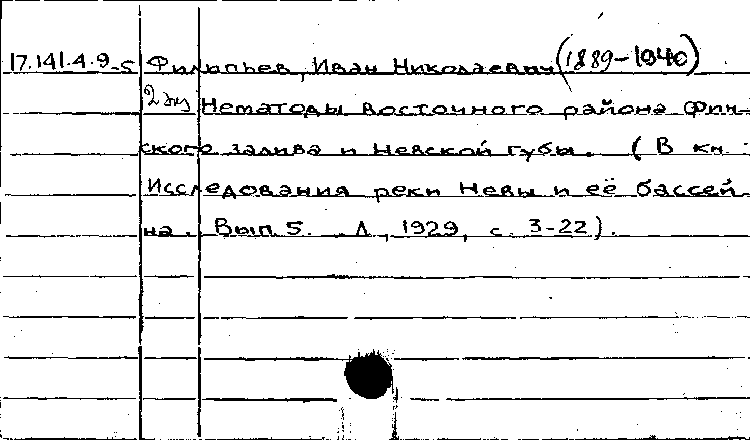 17.141.4.9-5 Филипьев, Иван Николаевич (1889-1940)
2 экз Нематоды Восточного района Фин-
ского залива и Невской губы. (В кн.:
Исследования реки Невы и её бассей-
на. Вып. 5. Л., 1929, с. 3-22).